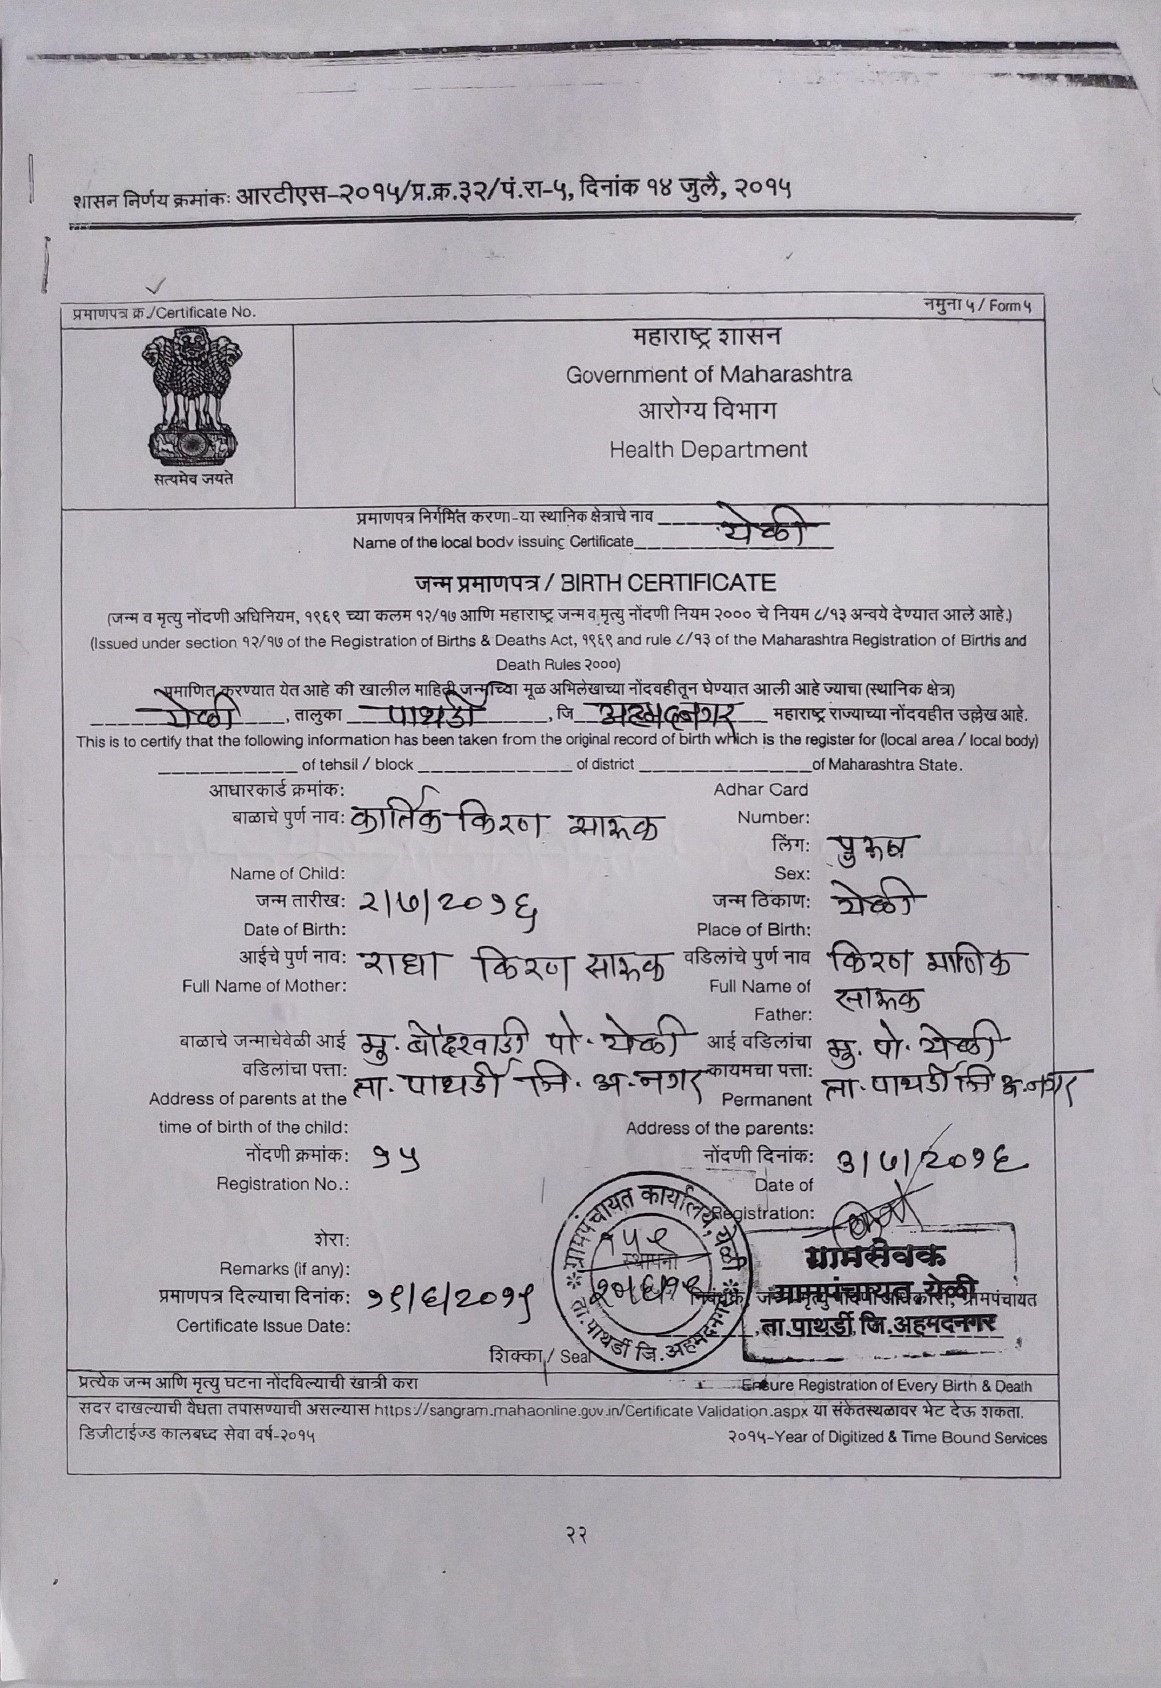 शासन निर्णय क्रमांकः आरटीएस-२०१५/प्र.क्र.३२/पं.रा-५, दिनांक १४ जुलै, २०१५
प्रमाणपत्र क्र./Certificate No.
नमुना ५ / Form ५
महाराष्ट्र शासन
Government of Maharashtra
आरोग्य विभाग
Health Department
सत्यमेव जयते
प्रमाणपत्र निर्गमित करणा-या स्थानिक क्षेत्राचे नाव येळी
Name of the local body issuing Certificate
जन्म प्रमाणपत्र / BIRTH CERTIFICATE
(जन्म व मृत्यु नोंदणी अधिनियम, १९६९ च्या कलम १२/१७ आणि महाराष्ट्र जन्म व मृत्यु नोंदणी नियम २००० चे नियम ८/१३ अन्वये देण्यात आले आहे.)
(Issued under section १२/१७ of the Registration of Births & Deaths Act, १९६९ and rule ८/१३ of the Maharashtra Registration of Births and
Death Rules २०००)
प्रमाणित करण्यात येत आहे की खालील माहिती जन्माच्या मूळ अभिलेखाच्या नोंदवहीतून घेण्यात आली आहे ज्याचा (स्थानिक क्षेत्र)
येळी, तालुका पाथर्डी, जि अहमदनगर महाराष्ट्र राज्याच्या नोंदवहीत उल्लेख आहे.
This is to certify that the following information has been taken from the original record of birth which is the register for (local area / local body)
of tehsil / block of district of Maharashtra State.
आधारकार्ड क्रमांक: Adhar Card
बाळाचे पुर्ण नाव: कार्तिक किरण सारुक Number:
लिंग: पुरुष
Name of Child: Sex:
जन्म तारीख: २/७/२०१६ जन्म ठिकाण: येळी
Date of Birth: Place of Birth:
आईचे पुर्ण नाव: राधा किरण सारुक वडिलांचे पुर्ण नाव किरण माणिक
Full Name of Mother: Full Name of सारुक
Father:
बाळाचे जन्माचेवेळी आई मु. बोंदरवाडी पो. येळी आई वडिलांचा मु. पो. येळी
वडिलांचा पत्ता: ता. पाथर्डी जि. अ.नगर कायमचा पत्ता: ता. पाथर्डी जि अ.नगर
Address of parents at the Permanent
time of birth of the child: Address of the parents:
नोंदणी क्रमांक: १५ नोंदणी दिनांक: ३/७/२०१६
Registration No.: Date of
Registration:
शेरा:
Remarks (if any):
प्रमाणपत्र दिल्याचा दिनांक: १९/६/२०१९
Certificate Issue Date:
ग्रामपंचायत कार्यालय, येळी
स्थापना
ता. पाथर्डी जि. अहमदनगर
ग्रामसेवक
ग्रामपंचायत येळी
ता. पाथर्डी, जि. अहमदनगर
निबंधक, जन्म मृत्यु नोंदणी अधिकारी, ग्रामपंचायत
शिक्का / Seal
प्रत्येक जन्म आणि मृत्यु घटना नोंदविल्याची खात्री करा Ensure Registration of Every Birth & Death
सदर दाखल्याची वैधता तपासण्याची असल्यास https://sangram.mahaonline.gov.in/Certificate Validation.aspx या संकेतस्थळावर भेट देऊ शकता.
डिजीटाईज्ड कालबध्द सेवा वर्ष-२०१५ २०१५-Year of Digitized & Time Bound Services
२२